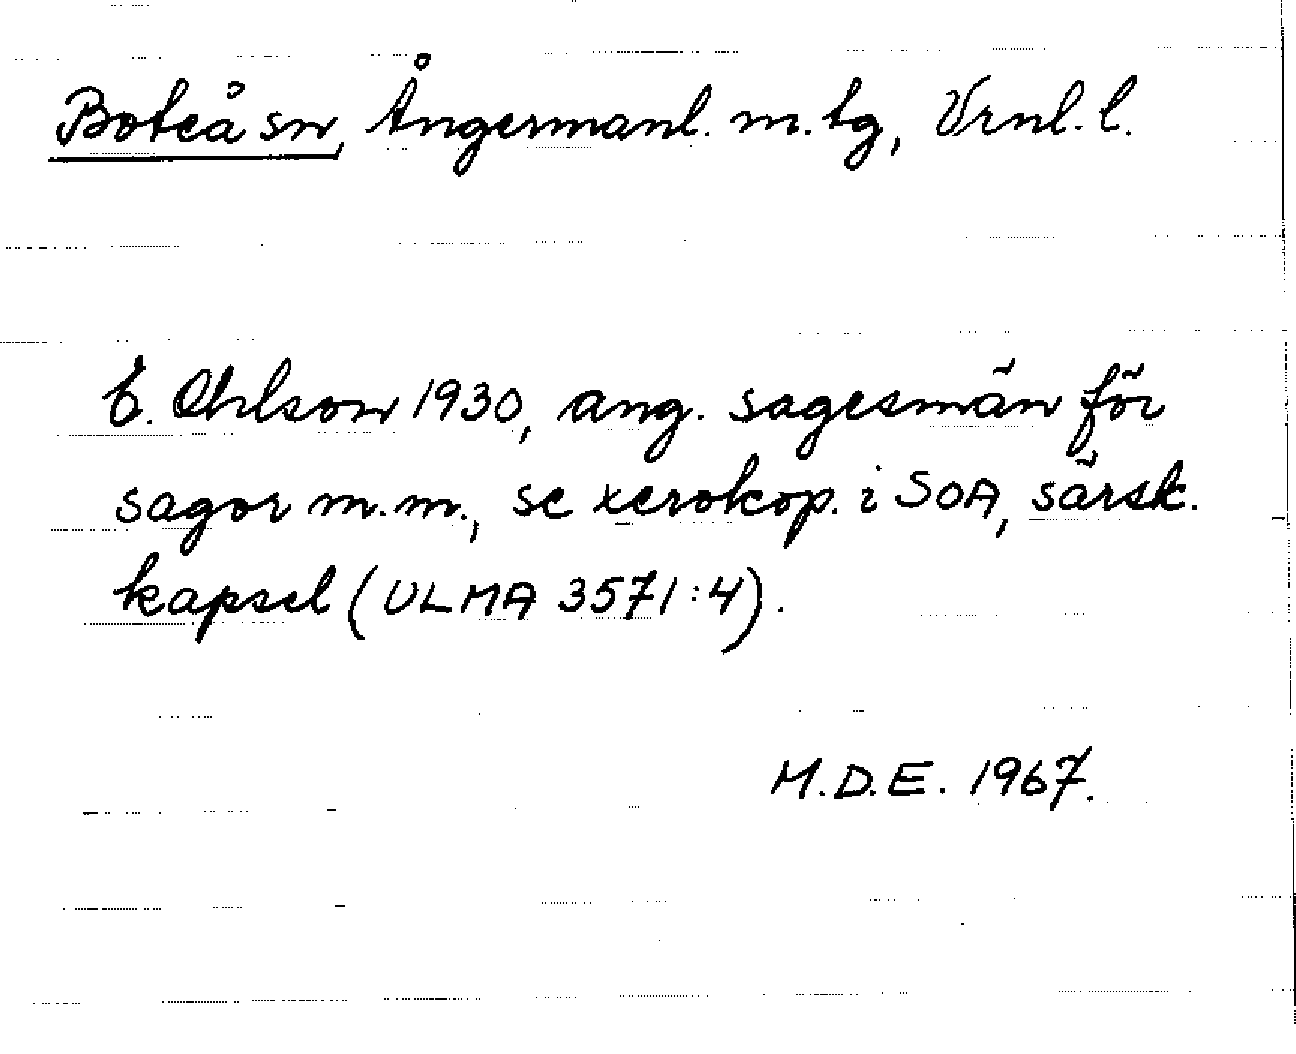 Boteå sn, Ångermanl. m. tg, Vrnl. l.
E. Ohlson 1930, ang. sagesmän för
sagor m.m., se xerokop. i SOA, särsk.
kapsel (ULMA 3571:4).
M.D.E. 1967.